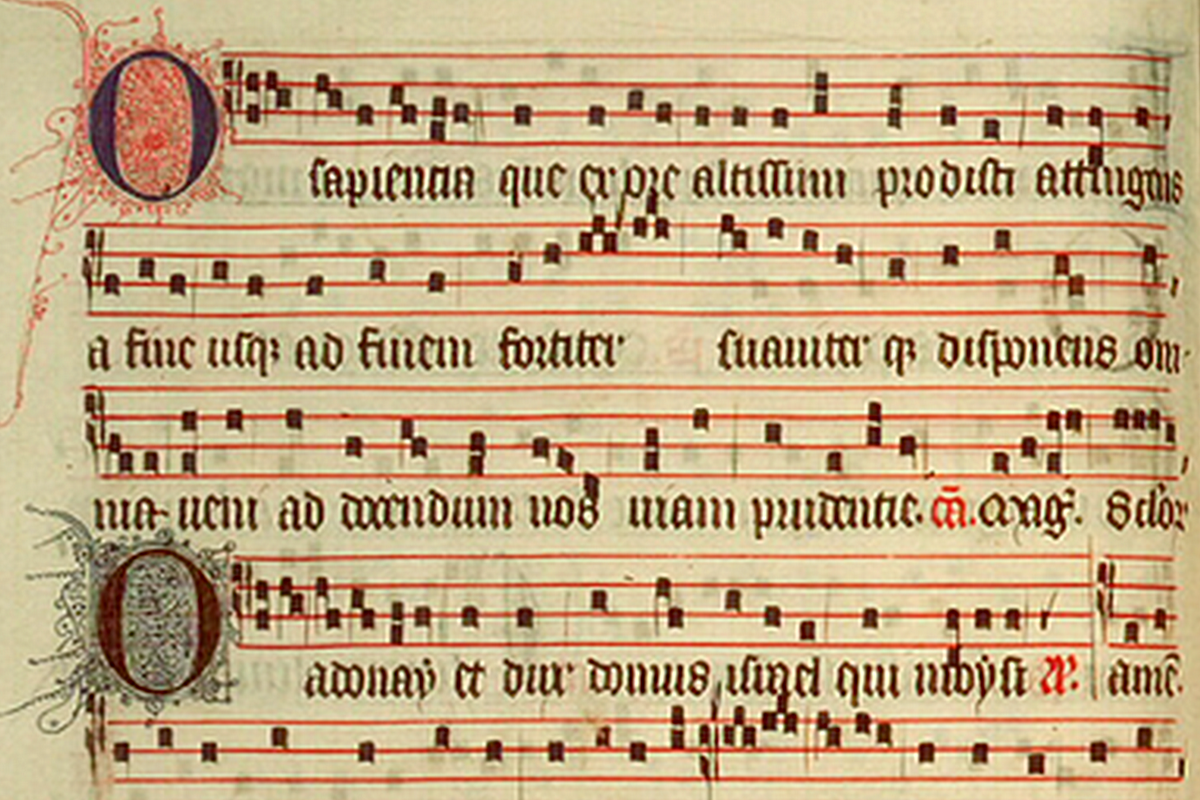 O sapientia que ex ore altissimi prodisti attingens
a fine usq3 ad finem fortiter suauiter q3 disponens om-
nia ueni ad docendum nos uiam prudentie. cā. Mag̃. Sclor
O adonaÿ et dux domus israel qui moÿsi amē.